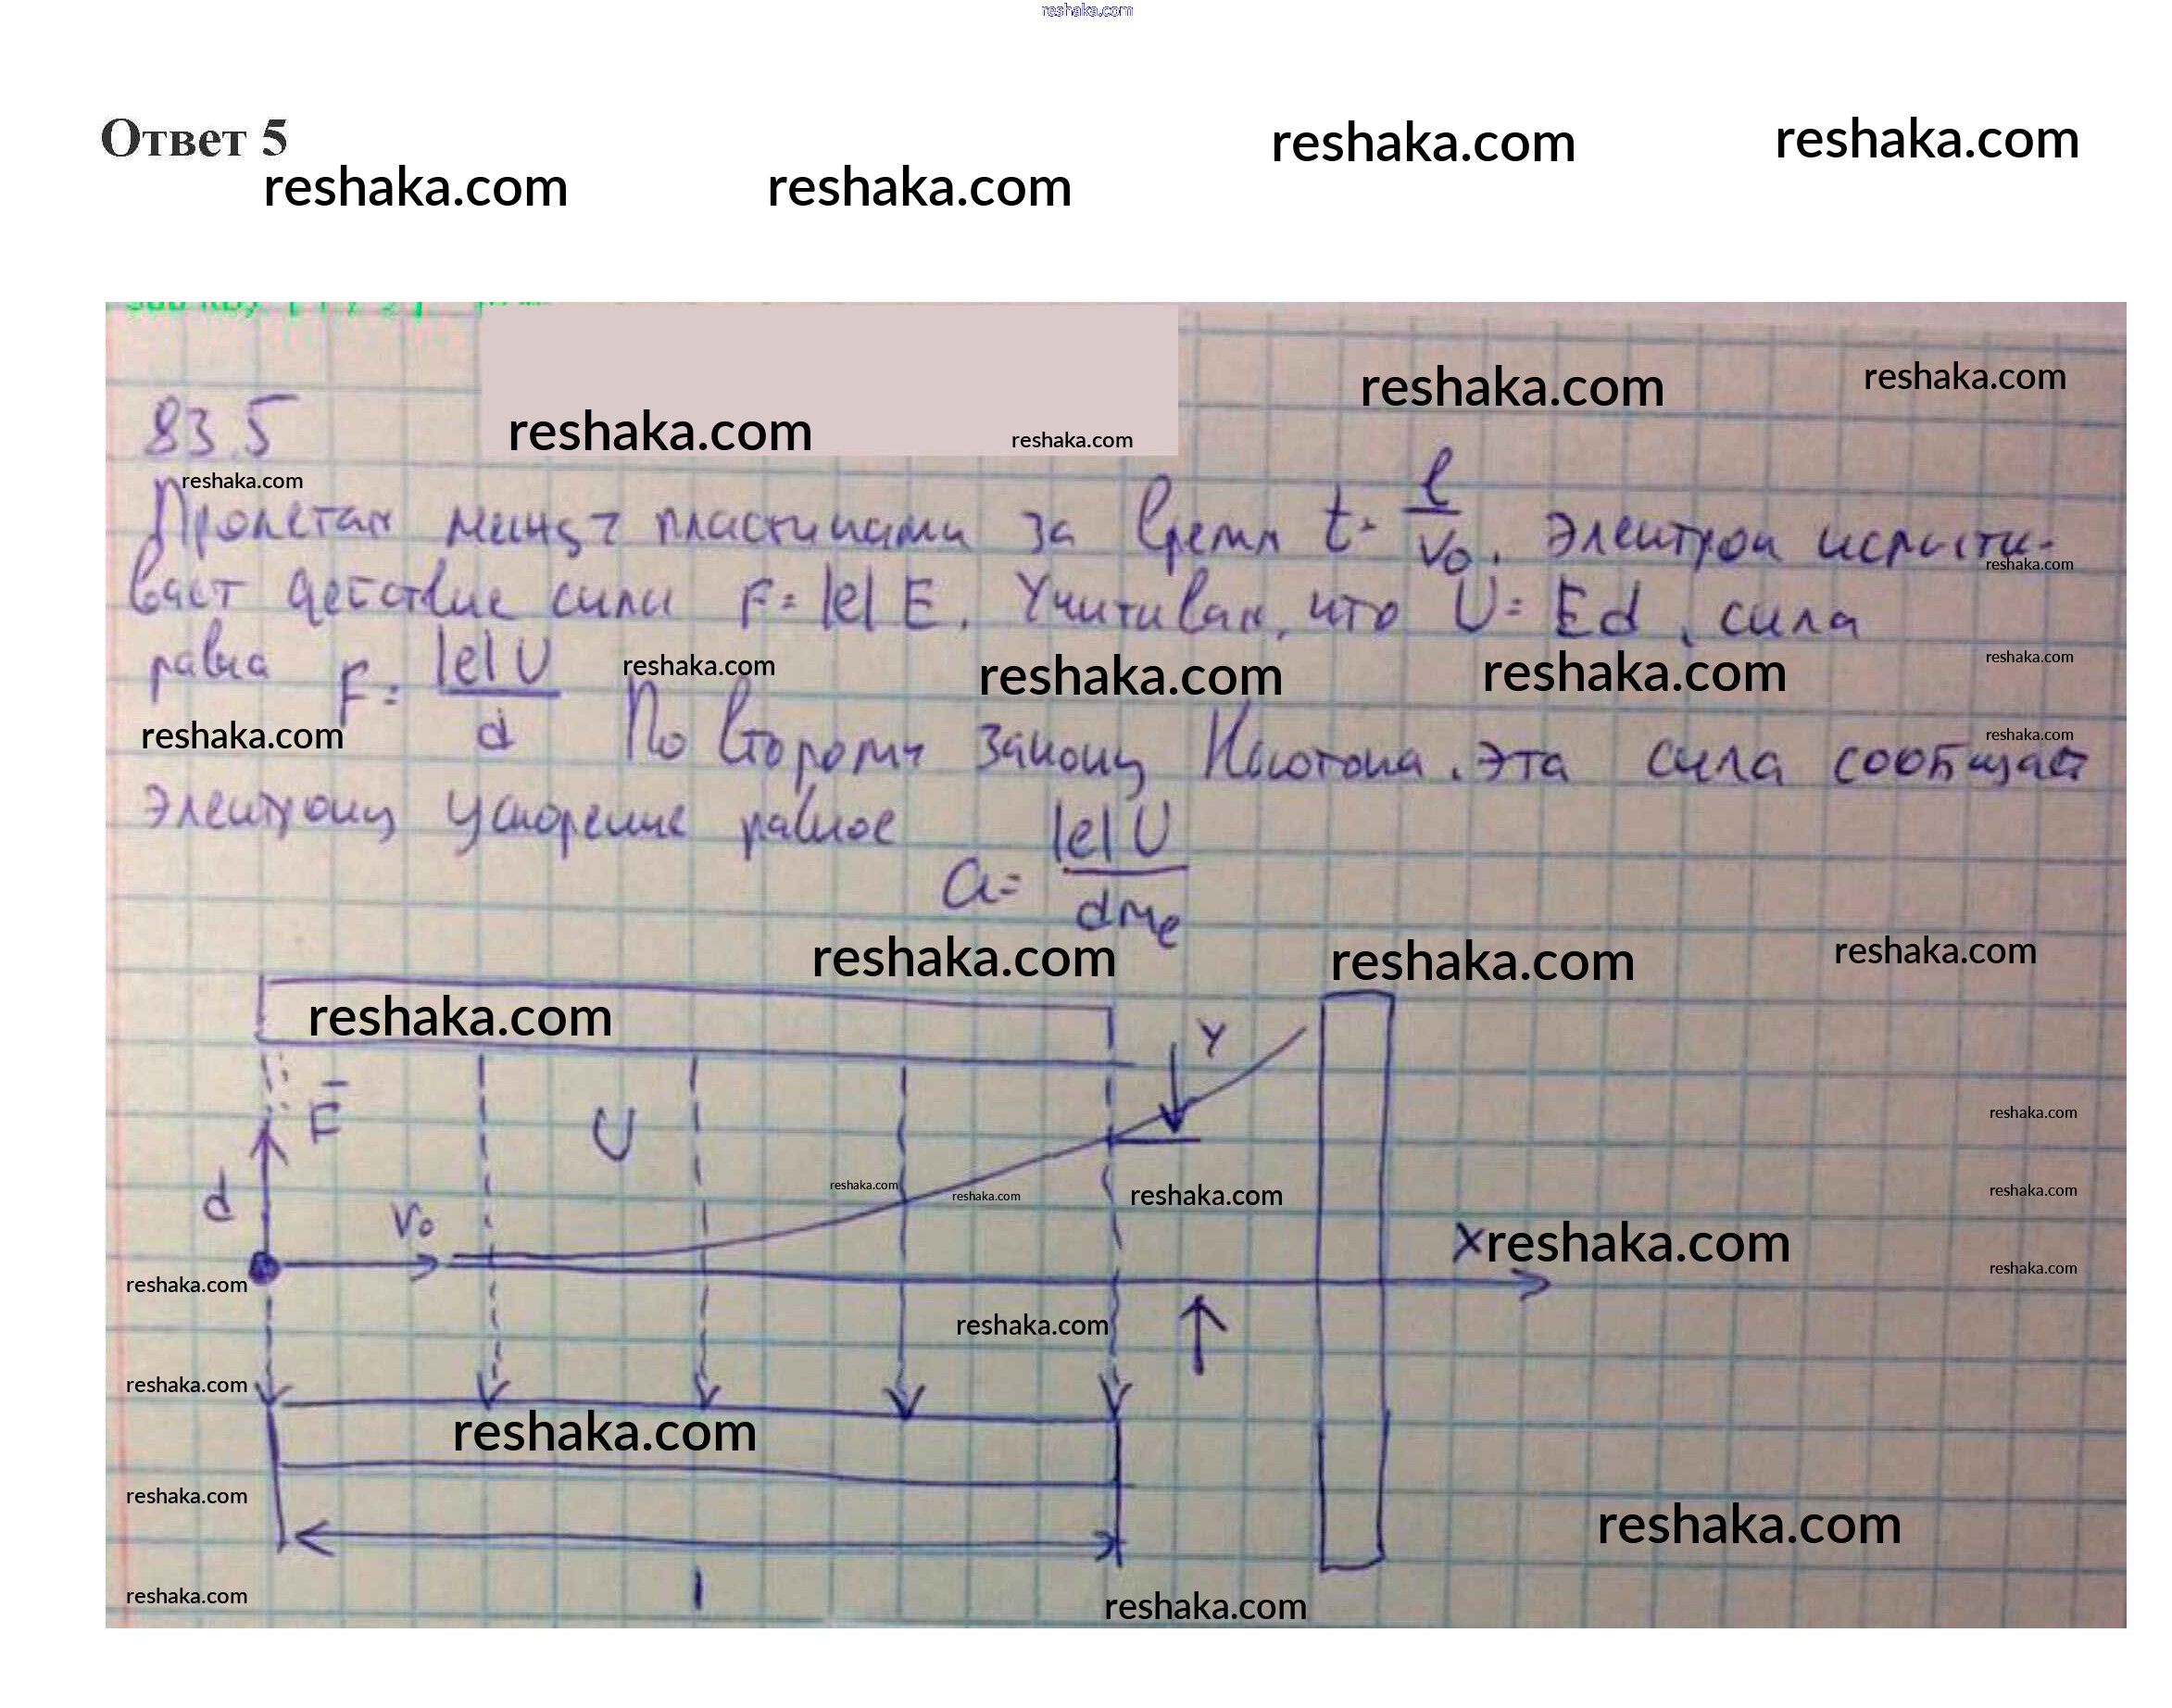 reshaka.com
Ответ 5
reshaka.com reshaka.com
reshaka.com reshaka.com
reshaka.com reshaka.com
83.5 reshaka.com reshaka.com
reshaka.com
Пролетая между пластинами за время t = l/v₀. Электрон испыты-
reshaka.com
вает действие силы F = |e| E. Учитывая, что U = Ed, сила
равна F = |e|U/d reshaka.com reshaka.com reshaka.com reshaka.com
reshaka.com По второму закону Ньютона, эта сила сообщает reshaka.com
электрону ускорение равное
a = |e|U/dmₑ
reshaka.com reshaka.com reshaka.com
reshaka.com
Y
F U reshaka.com
d reshaka.com reshaka.com reshaka.com reshaka.com
v₀ x reshaka.com
reshaka.com reshaka.com
reshaka.com
reshaka.com
reshaka.com
reshaka.com reshaka.com
l
reshaka.com reshaka.com